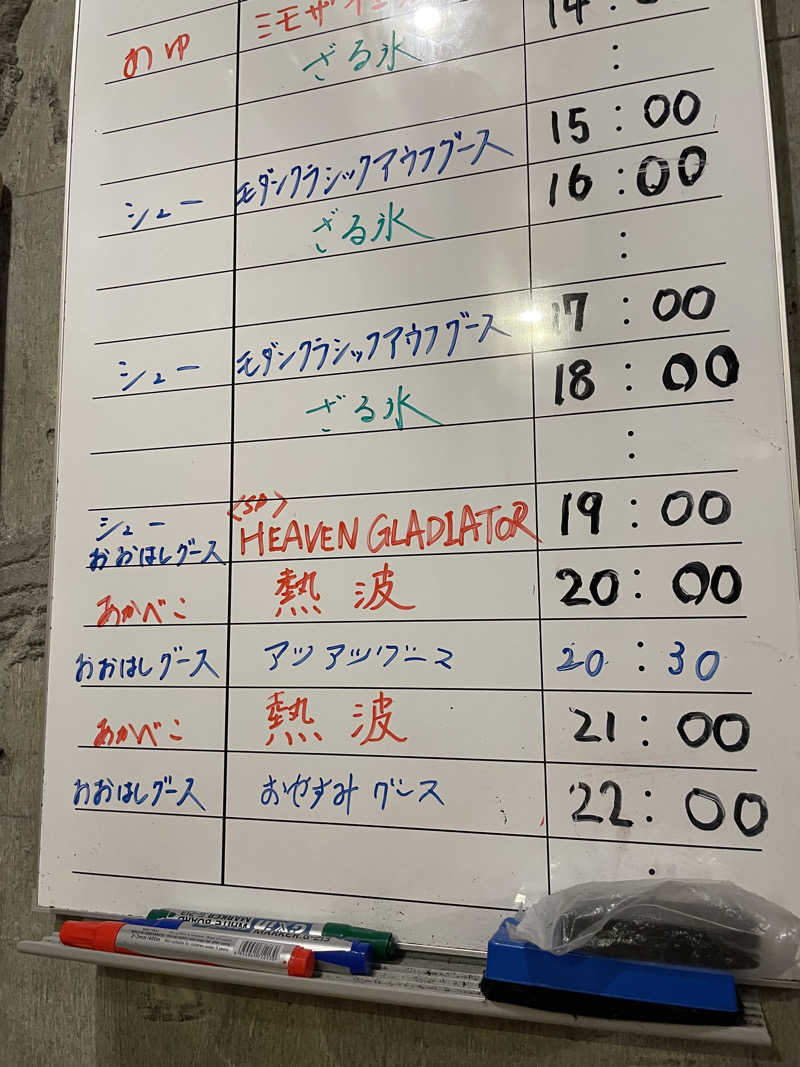 14:00
あゆ
ざる氷
:
15:00
シュー モダンクラシックアウフグース 16:00
ざる氷
:
17:00
シュー モダンクラシックアウフグース 18:00
ざる氷
:
シュー
おおはしグース
<SP>
HEAVEN GLADIATOR 19:00
あかべこ 熱波 20:00
おおはしグース アツアツグース 20:30
あかべこ 熱波 21:00
おおはしグース おやすみグース 22:00
WHITE BOARD
MARKER